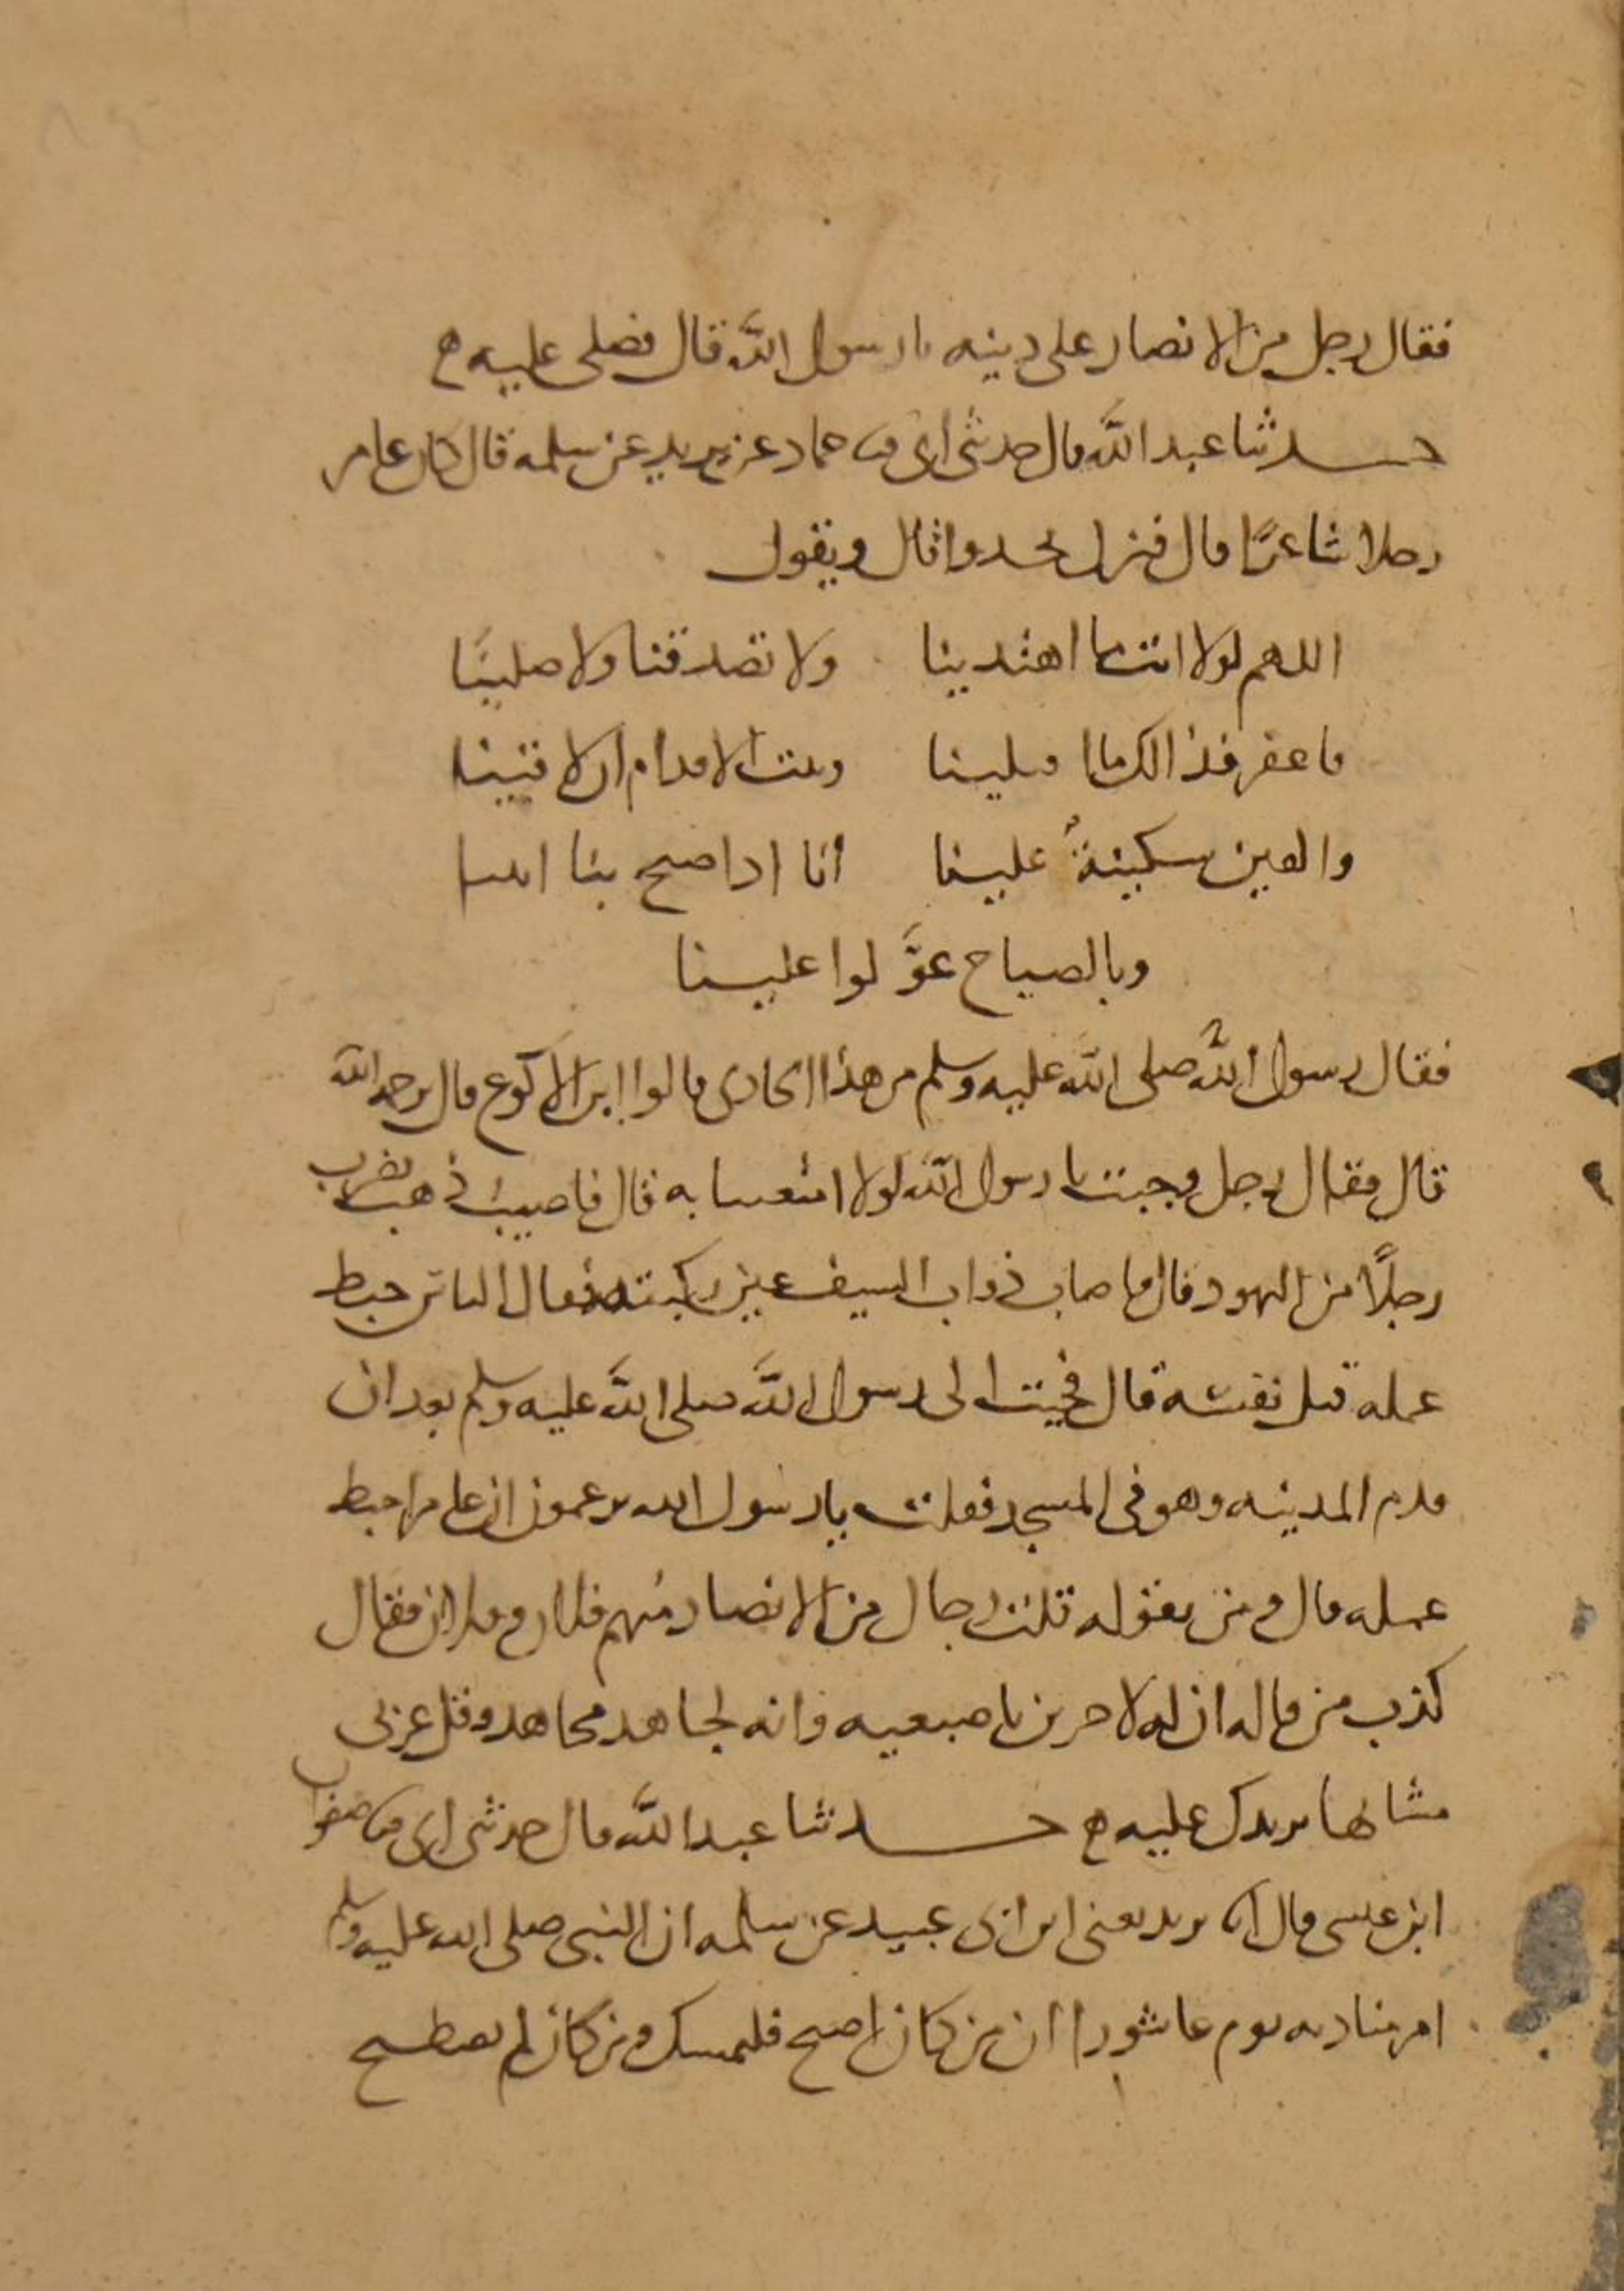 فقال رجل من الانصار على دينه يا رسول الله قال فصلى عليه ه
حدثنا عبد الله قال حدثني ابي ثنا حماد عن يزيد عن سلمه قال كان عامر
رجلا شاعرًا قال فنزل يحدوا قال ويقول
اللهم لولا انت ما اهتدينا ولا تصدقنا ولا صلينا
فاغفر فذالك ما اقتلينا وثبت الاقدام ان لاقينا
والقين سكينةً علينا انا اذا صيح بنا اتينا
وبالصياح عوَّلوا علينا
فقال رسول الله صلى الله عليه وسلم من هذا الحادى قالوا ابن الاكوع قال يرحمه الله
قال فقال رجل وجبت يا رسول الله لولا امتعتنا به قال فاصيب ذهب يضرب
رجلًا من اليهود قال فاصاب ذواب السيف عين ركبته فقال الناس حبط
عمله قتل نفسه قال فجيت الى رسول الله صلى الله عليه وسلم بعد ان
قدم المدينه وهو في المسجد فقلت يا رسول الله يزعمون ان عامرا حبط
عمله قال ومن يقوله قلت رجال من الانصار منهم فلان وفلان فقال
كذب من قاله ان له لاجرين باصبعيه وانه لجاهد مجاهد وقل عربى
مشا بها يريدك عليه ه حدثنا عبد الله قال حدثني ابي ثنا صفوان
ابن عيسى قال انا يزيد يعنى ابن ابى عبيد عن سلمه ان النبي صلى الله عليه وسلم
امر مناديه يوم عاشورا ان من كان اصبح فليمسك ومن كان لم يصطبح